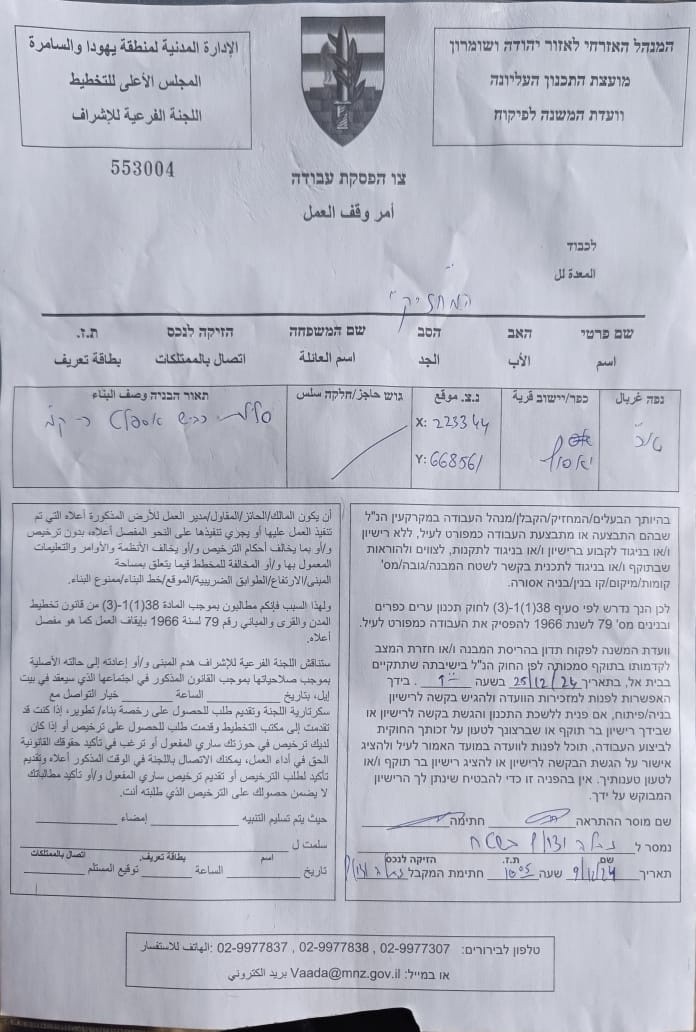 המנהל האזרחי לאזור יהודה ושומרון
מועצת התכנון העליונה
וועדת המשנה לפיקוח
الإدارة المدنية لمنطقة يهودا والسامرة
المجلس الأعلى للتخطيط
اللجنة الفرعية للإشراف
553004
צו הפסקת עבודה
أمر وقف العمل
לכבוד
المعدة لل
"המחזיק"
שם פרטי האב הסב שם המשפחה הזיקה לנכס ת.ז.
اسم الأب الجد اسم العائلة اتصال بالممتلكات بطاقة تعريف
נפה غربال כפר/יישוב قرية נ.צ. موقع גוש حاجز/חלקה سلس תאור הבניה وصف البناء
X: 223344
סלילת כביש אספלט
יאסוף
Y: 668561
בהיותך הבעלים/המחזיק/הקבלן/מנהל העבודה במקרקעין הנ"ל
שבהם התבצעה או מתבצעת העבודה כמפורט לעיל, ללא רישיון
ו/או בניגוד לקבוע ברישיון ו/או בניגוד לתקנות, לצווים ולהוראות
שבתוקף ו/או בניגוד לתכנית בקשר לשטח המבנה/גובה/מס'
קומות/מיקום/קו בנין/בניה אסורה.
לכן הנך נדרש לפי סעיף 38(1)(1-3) לחוק תכנון ערים כפרים
ובנינים מס' 79 לשנת 1966 להפסיק את העבודה כמפורט לעיל.
וועדת המשנה לפקוח תדון בהריסת המבנה ו/או חזרת המצב
לקדמותו בתוקף סמכותה לפן החוק הנ"ל בישיבתה שתתקיים
בבית אל, בתאריך 25/12/24 בשעה . בידך
האפשרות לפנות למזכירות הועדה ולהגיש בקשה לרישיון
בניה/פיתוח, אם פנית ללשכת התכנון והגשת בקשה לרישיון או
שבידך רישיון בר תוקף או שברצונך לטעון על זכותך החוקית
לביצוע העבודה, תוכל לפנות לוועדה במועד האמור לעיל ולהציג
אישור על הגשת הבקשה לרישיון או להציג רישיון בר תוקף ו/או
לטעון טענותיך. אין בהפניה זו כדי להבטיח שינתן לך הרישיון
המבוקש על ידך.
שם מוסר ההתראה חתימה
נמסר ל
שם ת.ז. הזיקה לנכס
תאריך 9/12/24 שעה חתימת המקבל
أن يكون المالك/الحائز/المقاول/مدير العمل للأرض المذكورة أعلاه التي تم
تنفيذ العمل عليها أو يجري تنفيذها على النحو المفصل أعلاه، بدون ترخيص
و/أو بما يخالف أحكام الترخيص و/أو يخالف الأنظمة والأوامر والتعليمات
المعمول بها و/أو المخالفة للمخطط فيما يتعلق بمساحة
المبنى/الارتفاع/الطوابق الضريبية/الموقع/خط البناء/ممنوع البناء.
ولهذا السبب فإنكم مطالبون بموجب المادة 38(1)(1-3) من قانون تخطيط
المدن والقرى والمباني رقم 79 لسنة 1966 بإيقاف العمل كما هو مفصل
أعلاه.
ستناقش اللجنة الفرعية للإشراف هدم المبنى و/أو إعادته إلى حالته الأصلية
بموجب صلاحياتها بموجب القانون المذكور في اجتماعها الذي سيعقد في بيت
إيل، بتاريخ الساعة خيار التواصل مع
سكرتارية اللجنة وتقديم طلب للحصول على رخصة بناء/ تطوير، إذا كنت قد
تقدمت إلى مكتب التخطيط وقدمت طلب للحصول على ترخيص أو إذا كان
لديك ترخيص في حوزتك ساري المفعول أو ترغب في تأكيد حقوقك القانونية
الحق في أداء العمل، يمكنك الاتصال باللجنة في الوقت المذكور أعلاه وتقديم
تأكيد لطلب الترخيص أو تقديم ترخيص ساري المفعول و/أو تأكيد مطالباتك
لا يضمن حصولك على الترخيص الذي طلبته أنت.
حيث يتم تسليم التنبيه إمضاء
سلمت ل
اسم بطاقة تعريف. اتصال بالممتلكات
تاريخ الساعة توقيع المستلم
טלפון לבירורים: 02-9977307 , 02-9977838 , 02-9977837 :الهاتف للاستفسار
או במייל: Vaada@mnz.gov.il بريد الكتروني